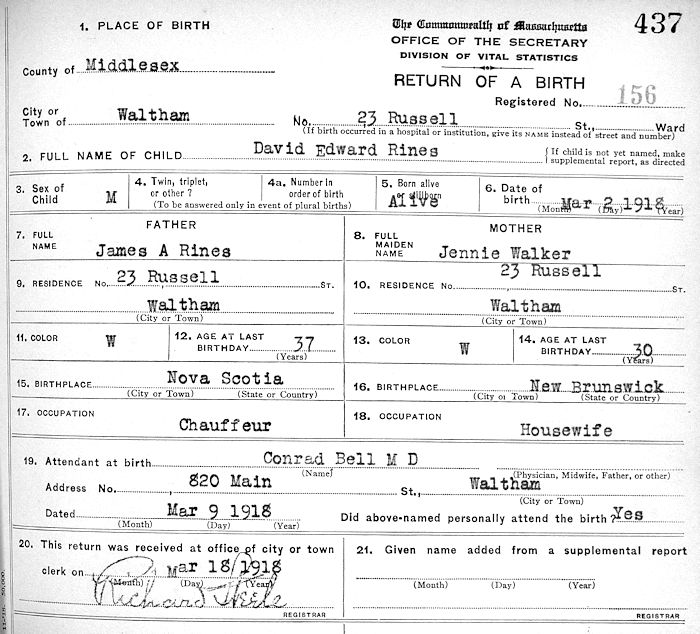 437
1. PLACE OF BIRTH
The Commonwealth of Massachusetts
OFFICE OF THE SECRETARY
DIVISION OF VITAL STATISTICS
RETURN OF A BIRTH
County of Middlesex
Registered No. 156
City or Town of Waltham No. 23 Russell St., Ward
(If birth occurred in a hospital or institution, give its NAME instead of street and number)
2. FULL NAME OF CHILD David Edward Rines { If child is not yet named, make supplemental report, as directed
3. Sex of Child M
4. Twin, triplet, or other?
4a. Number in order of birth
(To be answered only in event of plural births)
5. Born alive or stillborn Alive
6. Date of birth Mar 2 1918
(Month) (Day) (Year)
FATHER
7. FULL NAME James A Rines
MOTHER
8. FULL MAIDEN NAME Jennie Walker
9. RESIDENCE No. 23 Russell ST.
Waltham
(City or Town)
10. RESIDENCE No. 23 Russell
Waltham
(City or Town)
11. COLOR W
12. AGE AT LAST BIRTHDAY 37
(Years)
13. COLOR W
14. AGE AT LAST BIRTHDAY 30
(Years)
15. BIRTHPLACE Nova Scotia
(City or Town) (State or Country)
16. BIRTHPLACE New Brunswick
(City or Town) (State or Country)
17. OCCUPATION
Chauffeur
18. OCCUPATION
Housewife
19. Attendant at birth Conrad Bell M D
(Name) (Physician, Midwife, Father, or other)
Address No. 820 Main St., Waltham
(City or Town)
Dated Mar 9 1918 Did above-named personally attend the birth? Yes
(Month) (Day) (Year)
20. This return was received at office of city or town
clerk on Mar 18/1918
(Month) (Day) (Year)
Richard
REGISTRAR
21. Given name added from a supplemental report
(Month) (Day) (Year)
REGISTRAR